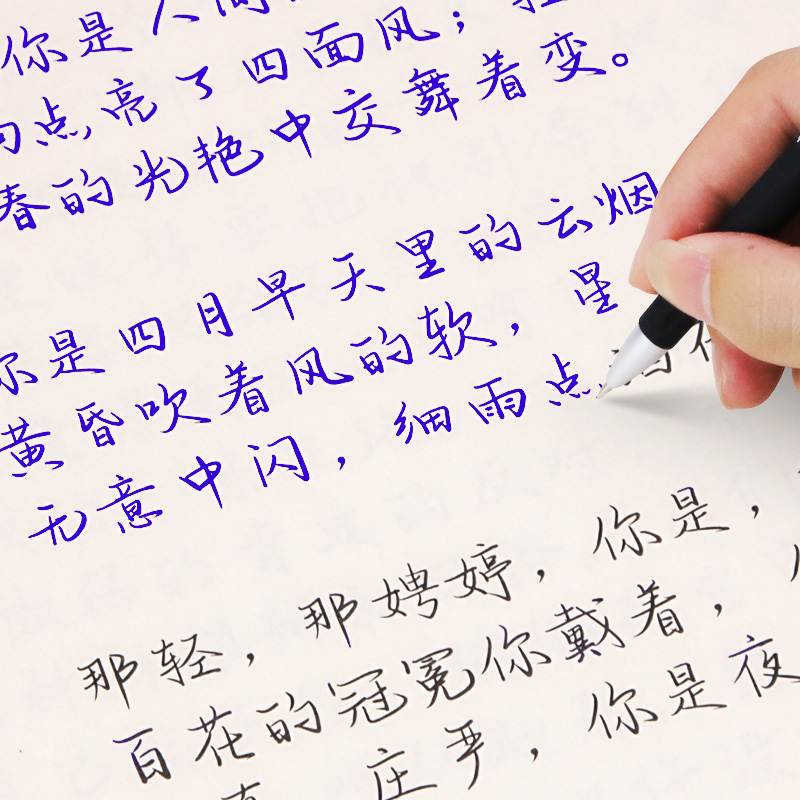 你是人间
点亮了四面风；轻
春的光艳中交舞着变。
你是四月早天里的云烟
黄昏吹着风的软，星
无意中闪，细雨点洒在
那轻，那娉婷，你是，
百花的冠冕你戴着，
庄严，你是夜